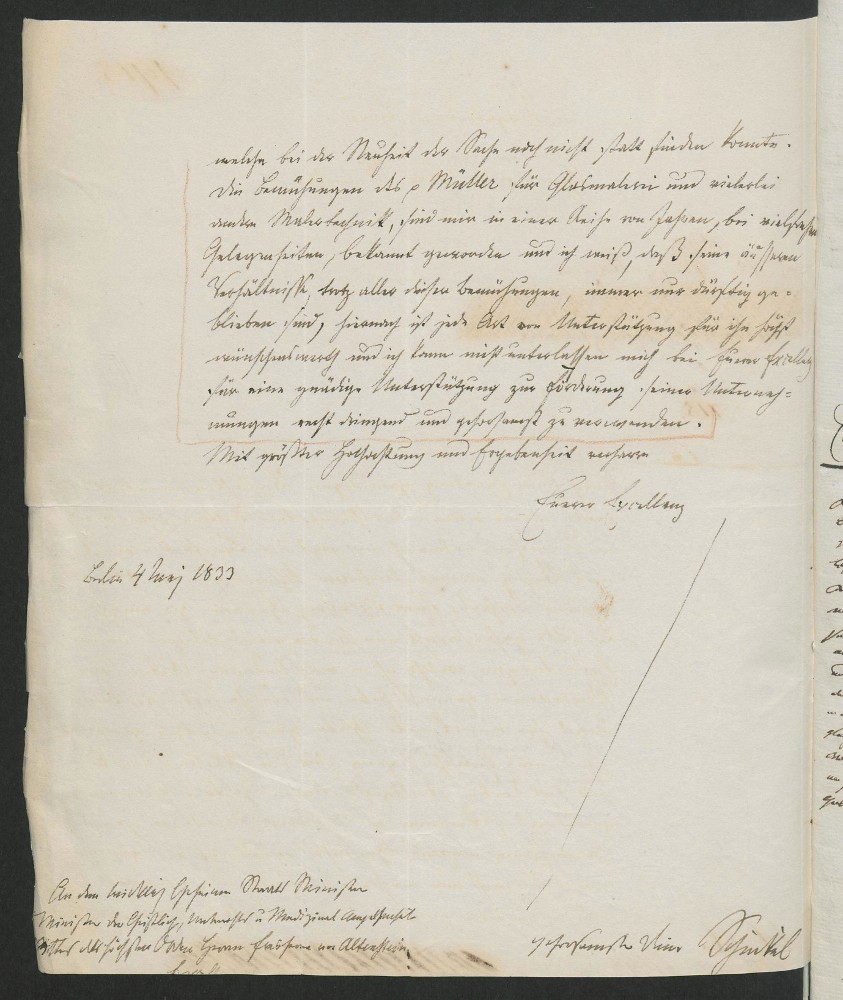 welche bei der Neuheit der Sache noch nicht statt finden konnte.
Die Bemühungen des p Müller für Glasmalerei und vielerlei
andere Malertechnik, sind mir in einer Reihe von Jahren, bei vielfachen
Gelegenheiten, bekannt geworden und ich weiß, daß seine äusseren
Verhältnisse, trotz aller dieser Bemühungen, immer nur dürftig ge=
blieben sind, hiernach ist jede Art von Unterstützung für ihn höchst
wünschenswerth und ich kann nicht unterlassen mich bei Euerer Excellenz
für eine gnädige Unterstützung zur Förderung seiner Unterneh=
mungen recht dringend und gehorsamst zu verwenden.
Mit größter Hochachtung und Ergebenheit verharre
Euerer Excellenz
Berlin 4 Mai 1833
An den Geheimen Staats Minister
Minister der Geistlich, Unterrichts u Medizinal Angelegenheit
Ritter des höchsten Orden Herrn Freiherrn von Altenstein
gehorsamster Diener Schinkel